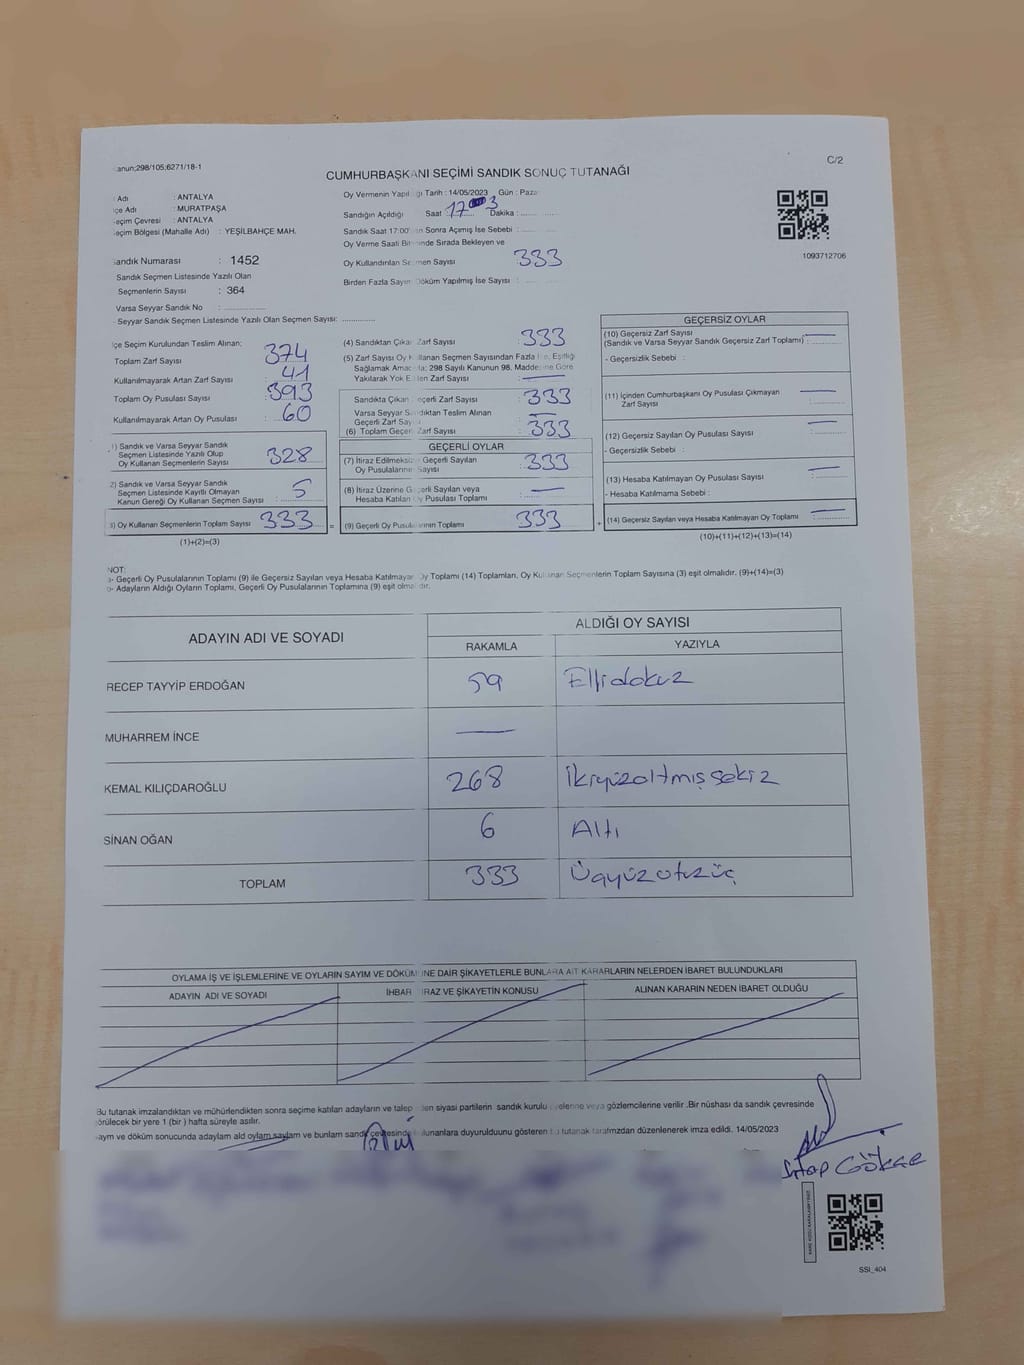 anun;298/105;6271/18-1
C/2
CUMHURBAŞKANI SEÇİMİ SANDIK SONUÇ TUTANAĞI
Adı : ANTALYA
çe Adı : MURATPAŞA
eçim Çevresi : ANTALYA
eçim Bölgesi (Mahalle Adı) : YEŞİLBAHÇE MAH.
andık Numarası : 1452
Sandık Seçmen Listesinde Yazılı Olan
Seçmenlerin Sayısı : 364
Varsa Seyyar Sandık No :
- Seyyar Sandık Seçmen Listesinde Yazılı Olan Seçmen Sayısı:
Oy Vermenin Yapıl ğı Tarih : 14/05/2023 Gün : Paza
Sandığın Açıldığı Saat : 17 3 Dakika :
Sandık Saat 17:00' n Sonra Açımış İse Sebebi :
Oy Verme Saati Bit inde Sırada Bekleyen ve
Oy Kullandırılan Se men Sayısı 333
Birden Fazla Sayım Döküm Yapılmış İse Sayısı :
1093712706
lçe Seçim Kurulundan Teslim Alınan;
Toplam Zarf Sayısı : 374
Kullanılmayarak Artan Zarf Sayısı : 41
Toplam Oy Pusulası Sayısı : 393
Kullanılmayarak Artan Oy Pusulası : 60
1) Sandık ve Varsa Seyyar Sandık
Seçmen Listesinde Yazılı Olup
Oy Kullanan Seçmenlerin Sayısı 328
2) Sandık ve Varsa Seyyar Sandık
Seçmen Listesinde Kayıtlı Olmayan
Kanun Gereği Oy Kullanan Seçmen Sayısı : 5
3) Oy Kullanan Seçmenlerin Toplam Sayısı 333 =
(1)+(2)=(3)
(4) Sandıktan Çıka Zarf Sayısı : 333
(5) Zarf Sayısı Oy K llanan Seçmen Sayısından Fazla İse, Eşitliği
Sağlamak Amac la; 298 Sayılı Kanunun 98. Maddesine Göre
Yakılarak Yok E len Zarf Sayısı : —
Sandıkta Çıkan eçerli Zarf Sayısı : 333
Varsa Seyyar S dıktan Teslim Alınan
Geçerli Zarf Say : —
(6) Toplam Geçer Zarf Sayısı : 333
GEÇERLİ OYLAR
(7) İtiraz Edilmeksiz Geçerli Sayılan
Oy Pusulalarını Sayısı : 333
(8) İtiraz Üzerine G çerli Sayılan veya
Hesaba Katılan Oy Pusulası Toplamı : —
(9) Geçerli Oy Pusul larının Toplamı : 333 +
GEÇERSİZ OYLAR
(10) Geçersiz Zarf Sayısı
(Sandık ve Varsa Seyyar Sandık Geçersiz Zarf Toplamı) : —
- Geçersizlik Sebebi :
(11) İçinden Cumhurbaşkanı Oy Pusulası Çıkmayan
Zarf Sayısı : —
(12) Geçersiz Sayılan Oy Pusulası Sayısı : —
- Geçersizlik Sebebi :
(13) Hesaba Katılmayan Oy Pusulası Sayısı : —
- Hesaba Katılmama Sebebi :
(14) Geçersiz Sayılan veya Hesaba Katılmayan Oy Toplamı : —
(10)+(11)+(12)+(13)=(14)
NOT:
a- Geçerli Oy Pusulalarının Toplamı (9) ile Geçersiz Sayılan veya Hesaba Katılmayan Oy Toplamı (14) Toplamları, Oy Kullanan Seçmenlerin Toplam Sayısına (3) eşit olmalıdır. (9)+(14)=(3)
b- Adayların Aldığı Oyların Toplamı, Geçerli Oy Pusulalarının Toplamına (9) eşit olmalıdır.
ADAYIN ADI VE SOYADI
ALDIĞI OY SAYISI
RAKAMLA YAZIYLA
RECEP TAYYİP ERDOĞAN 59 Ellidokuz
MUHARREM İNCE —
KEMAL KILIÇDAROĞLU 268 İkiyüzaltmışsekiz
SİNAN OĞAN 6 Altı
TOPLAM 333 Üçyüzotuzüç
OYLAMA İŞ VE İŞLEMLERİNE VE OYLARIN SAYIM VE DÖKÜMÜNE DAİR ŞİKAYETLERLE BUNLARA AİT KARARLARIN NELERDEN İBARET BULUNDUKLARI
ADAYIN ADI VE SOYADI
İHBAR İRAZ VE ŞİKAYETİN KONUSU
ALINAN KARARIN NEDEN İBARET OLDUĞU
Bu tutanak imzalandıktan ve mühürlendikten sonra seçime katılan adayların ve talep den siyasi partilerin sandık kurulu üyelerine veya gözlemcilerine verilir .Bir nüshası da sandık çevresinde
örülecek bir yere 1 (bir ) hafta süreyle asılır.
ayım ve döküm sonucunda adayların ald oyların sayıları ve bunların sandık çevresinde bulunanlara duyurulduunu gösteren bu tutanak tarafmzdan düzenlenerek imza edildi. 14/05/2023
Gökçe
SSI_404